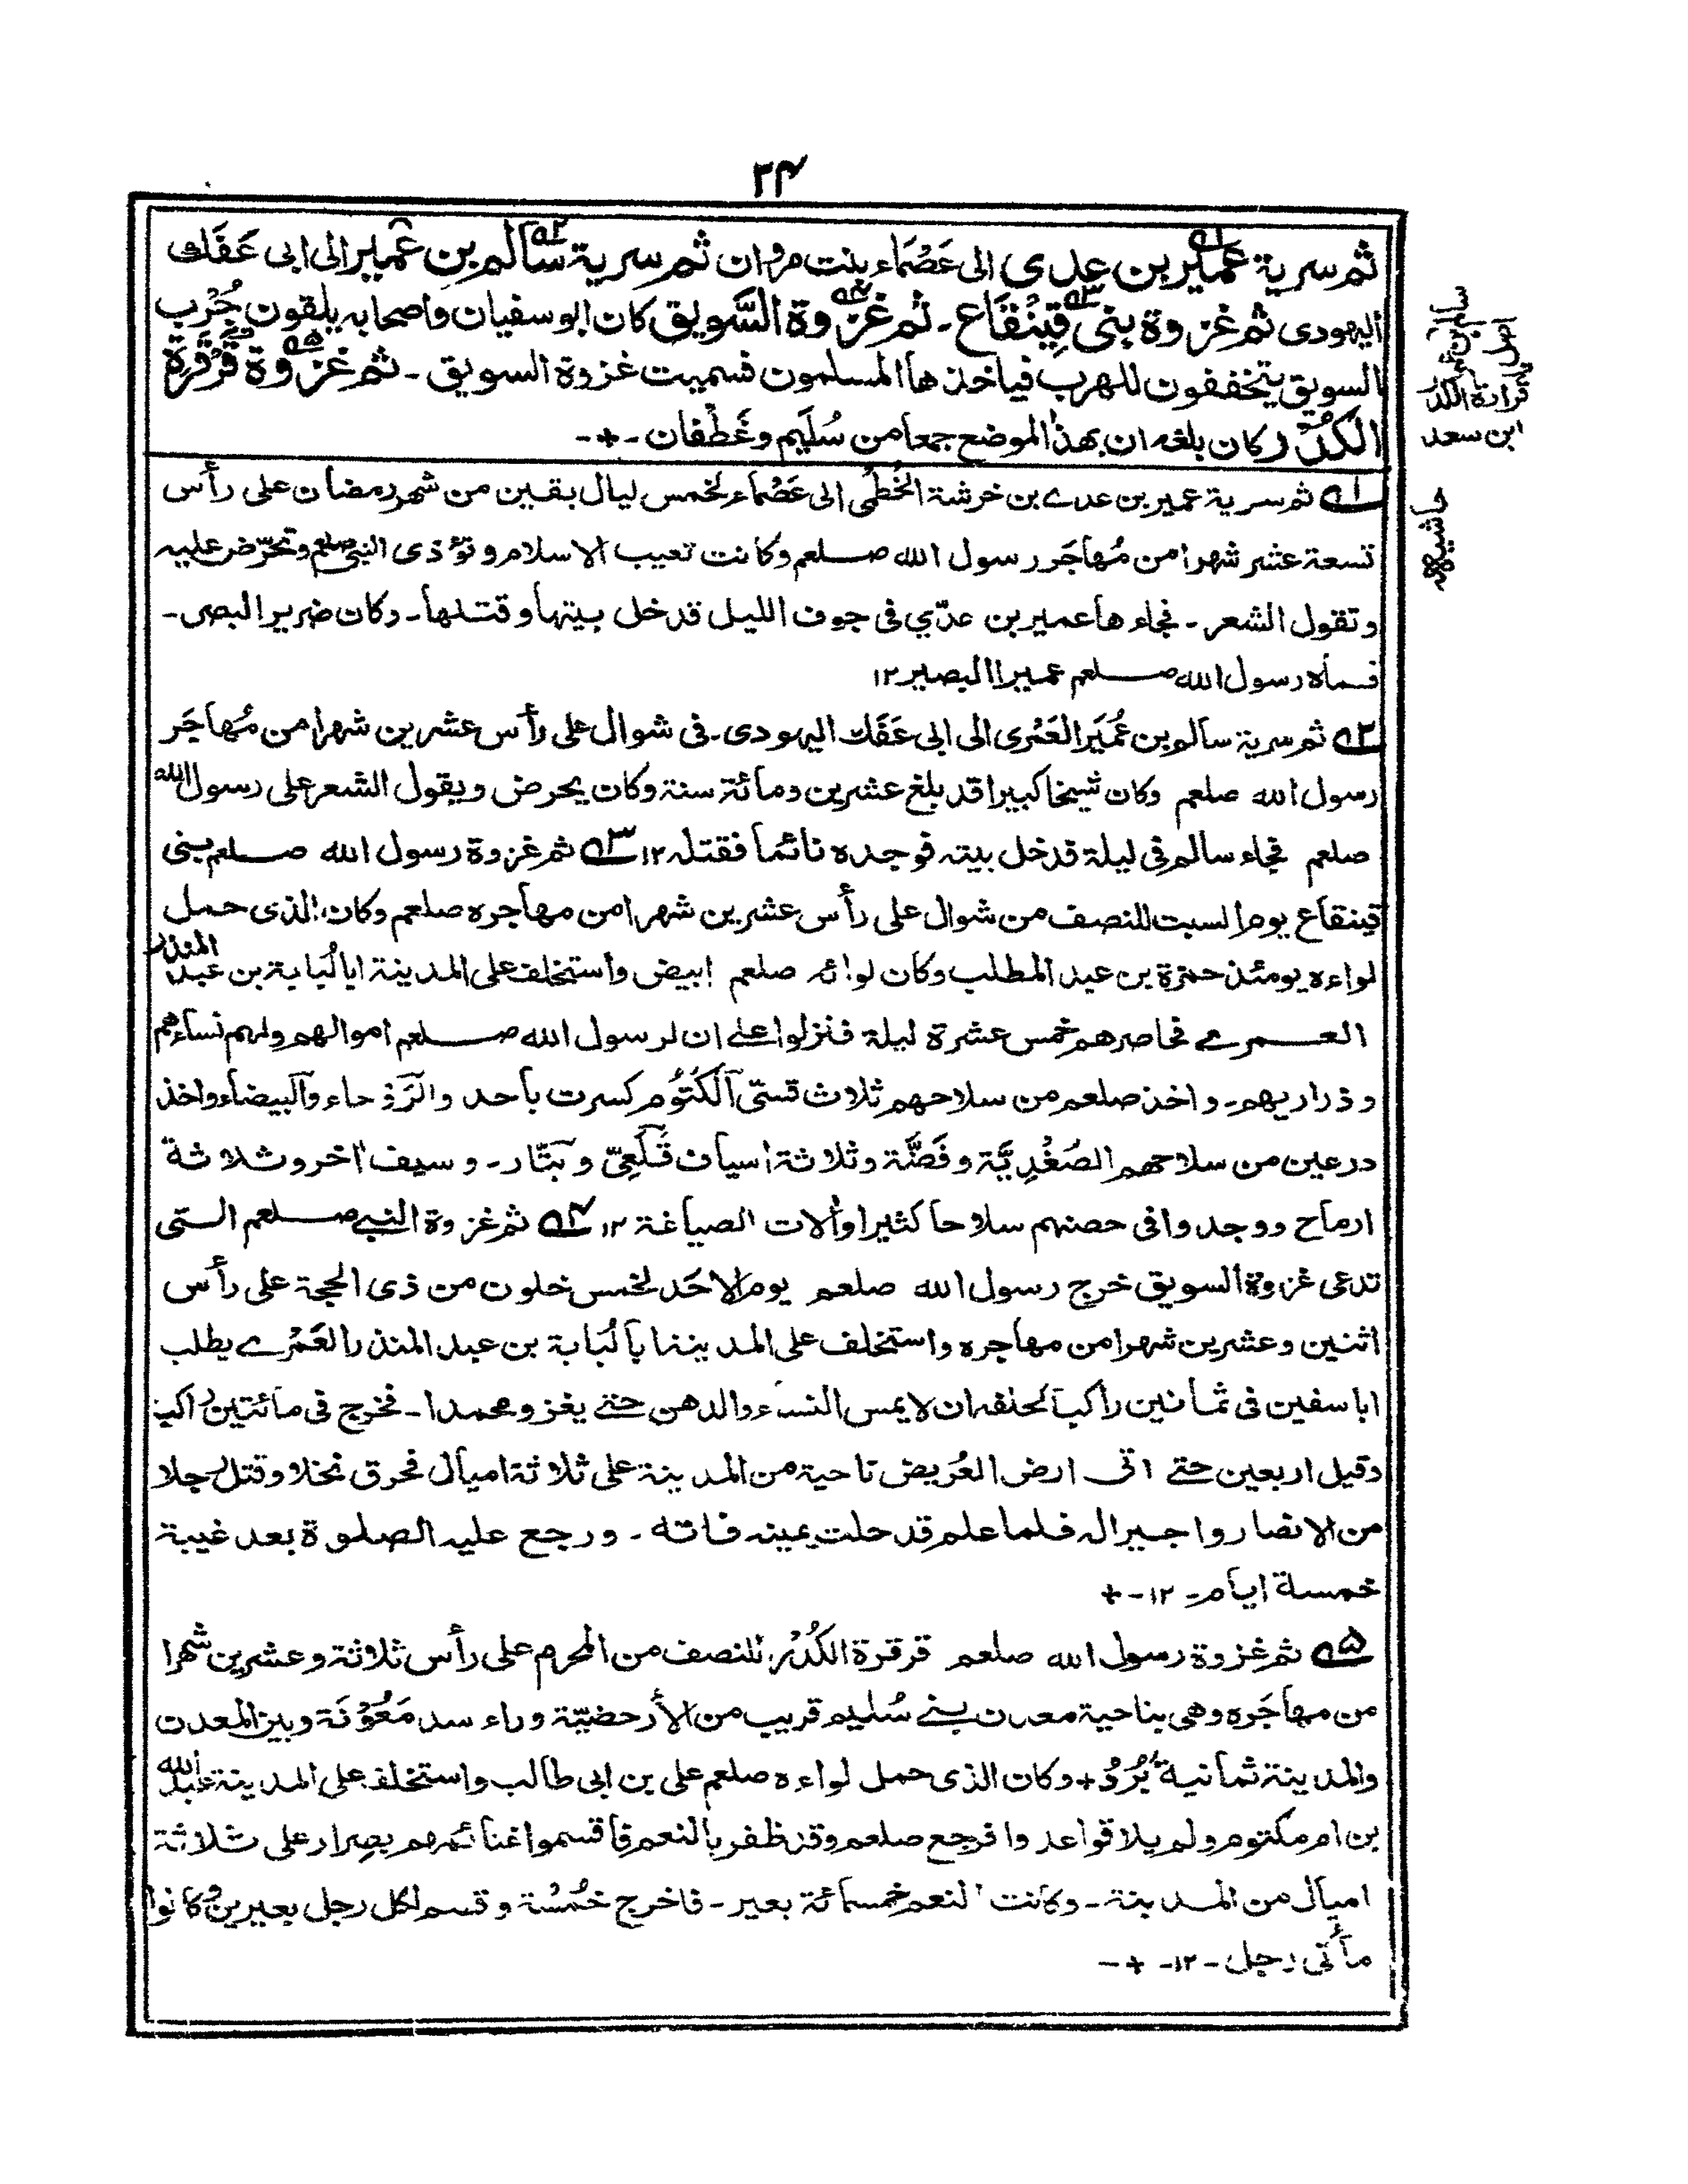 ۲۴
ثم سرية عمير بن عدى الى عَصْمَاء بنت مروان ثم سرية سالم بن عمير الى ابى عَفَك
اليهودى ثم غزوة بنى قينُقاع ـ ثم غزوة السَّويق كان ابو سفيان واصحابه يلقون جُرُب
السويق يتخففون للهرب فياخذها المسلمون فسميت غزوة السويق ـ ثم غزوة قَرْقَرَة
الكُدْر كان بلغه ان بهذا الموضع جمعا من سُلَيم وغَطَفان ـ+ـ
سالم بن عمير
اصل
قرارة الكدر
ابن سعد
حاشيه
۱ ثم سرية عمير بن عدے بن خرشة الخَطْمى الى عَصْماء لخمس ليال بقين من شهر رمضان على رأس
تسعة عشر شهرا من مُهاجَر رسول الله صلعم وكانت تعيب الاسلام وتؤذى النبى صلعم وتحرّض عليه
وتقول الشعر ـ فجاءها عمير بن عدّي فى جوف الليل قدخل بيتها وقتلها ـ وكان ضرير البصر ـ
فسماه رسول الله صلعم عميرا البصير ۱۲
۲ ثم سرية سالم بن عُمَير العَمْرى الى ابى عَفَك اليهودى ـ فى شوال على رأس عشرين شهرا من مُهاجَر
رسول الله صلعم وكان شيخا كبيرا قد بلغ عشرين ومائة سنة وكان يحرض ويقول الشعر على رسول الله
صلعم فجاء سالم فى ليلة قدخل بيته فوجده نائما فقتله ۱۲ ۳ ثم غزوة رسول الله صلعم بنى
قينقاع يوم السبت للنصف من شوال على رأس عشرين شهرا من مهاجره صلعم وكان الذى حمل
لواءه يومئذ حمزة بن عبد المطلب وكان لوائه صلعم ابيض واستخلف على المدينة ابا لُبابة بن عبد المنذر
العمرے فحاصرهم خمس عشرة ليلة فنزلوا علے ان لرسول الله صلعم اموالهم ولهم نساءهم
وذراريهم ـ واخذ صلعم من سلاحهم ثلاث قستى الكَتُوُم كسرت باحد والرَّوحاء والبيضاء واخذ
درعين من سلاحهم الصُغْدِيَّة وفَضَّة وثلاثة اسياف قَلَعِىّ وبَتّار ـ وسيف اخر وثلاثة
ارماح ووجدوا فى حصنهم سلاحا كثيرا وآلات الصياغة ۱۲ ۴ ثم غزوة النبے صلعم التى
تدعى غزوة السويق خرج رسول الله صلعم يوم الاحَد لخمس خلون من ذى الحجة على رأس
اثنين وعشرين شهرا من مهاجره واستخلف على المدينة ابا لُبابة بن عبد المنذر العَمْرے يطلب
ابا سفين فى ثمانين راكبا لحلفه ان لا يمس النساء والدهن حتے يغزو محمدا ـ فخرج فى مائتين راكب
وقيل اربعين حتے اتى ارض العُرَيض ناحية من المدينة على ثلاثة اميال فحرق نخلا وقتل رجلا
من الانصار واجيرا له فلما علم قد حلت يمينه فاته ـ ورجع عليه الصلوة بعد غيبة
خمسة ايام ـ ۱۲ ـ +
۵ ثم غزوة رسول الله صلعم قرقرة الكُدْر للنصف من المحرم على رأس ثلاثة وعشرين شهرا
من مهاجَره وهى بناحية معدن بنے سُليم قريب من الأرحضيّة وراء سد مَعُوْنَة وبين المعدن
والمدينة ثمانية بُرُد+ وكان الذى حمل لواءه صلعم على بن ابى طالب واستخلف على المدينة عبد الله
بن ام مكتوم ولم يلاقوا عدوا فرجع صلعم وقد ظفر بالنعم فاقسموا غنائمهم بصِرار على ثلاثة
اميال من المدينة ـ وكانت النعم خمسمائة بعير ـ فاخرج خُمُسَة وقسم لكل رجل بعيرين وكانوا
مأتى رجل ـ ۱۲ ـ + ـ